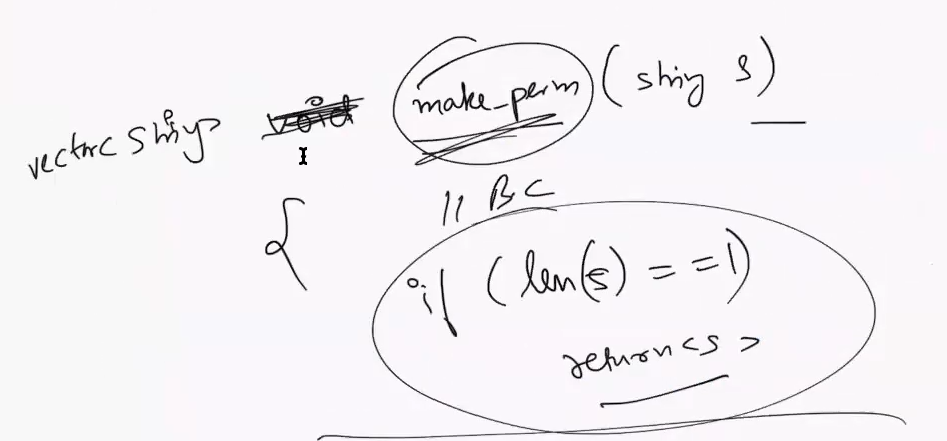 vector<string> void make_perm (string s)
{ // BC
if (len(s) == 1)
return <s>